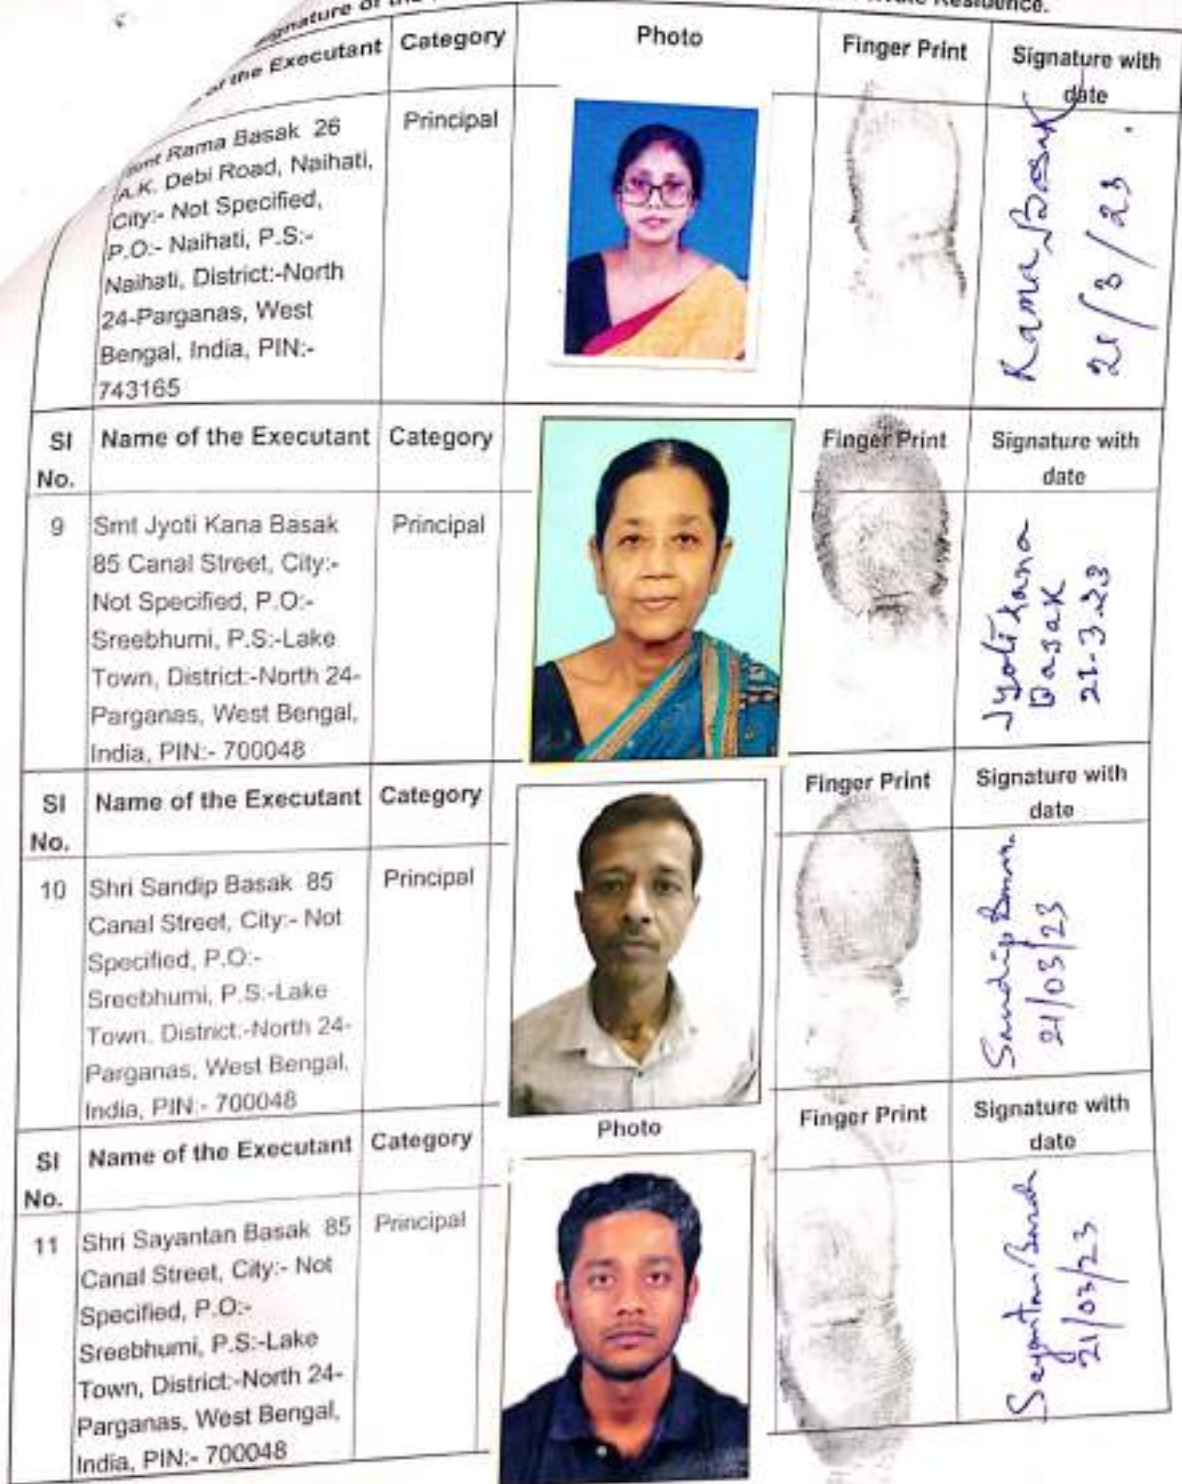 ignature of the
Residence.
of the Executant Category Photo Finger Print Signature with
date
Smt Rama Basak 26 Principal
A.K. Debi Road, Naihati,
City:- Not Specified,
P.O:- Naihati, P.S:-
Naihati, District:-North
24-Parganas, West
Bengal, India, PIN:-
743165
Rama Basak
21/3/23
Sl Name of the Executant Category Finger Print Signature with
No. date
9 Smt Jyoti Kana Basak Principal
85 Canal Street, City:-
Not Specified, P.O:-
Sreebhumi, P.S:-Lake
Town, District:-North 24-
Parganas, West Bengal,
India, PIN:- 700048
Jyoti Kana
Basak
21.3.23
Sl Name of the Executant Category Finger Print Signature with
No. date
10 Shri Sandip Basak 85 Principal
Canal Street, City:- Not
Specified, P.O:-
Sreebhumi, P.S:-Lake
Town, District:-North 24-
Parganas, West Bengal,
India, PIN:- 700048
Sandip
21/03/23
Sl Name of the Executant Category Photo Finger Print Signature with
No. date
11 Shri Sayantan Basak 85 Principal
Canal Street, City:- Not
Specified, P.O:-
Sreebhumi, P.S:-Lake
Town, District:-North 24-
Parganas, West Bengal,
India, PIN:- 700048
Sayantan Basak
21/03/23